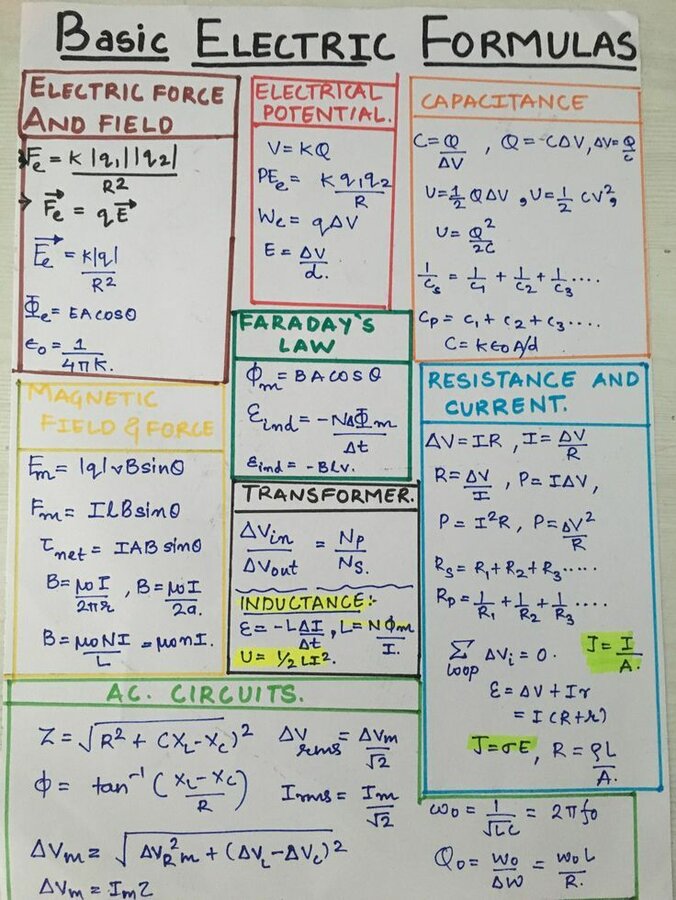 Basic Electric Formulas
ELECTRIC FORCE
AND FIELD
Fe = K|q1||q2| / R²
→ Fe = qE
Ee = K|q| / R²
Φe = EA cosθ
ϵ0 = 1 / 4πK.
ELECTRICAL
POTENTIAL.
V = KQ
PEe = Kq1q2 / R
We = qΔV
E = ΔV / d.
CAPACITANCE
C = Q / ΔV , Q = CΔV, ΔV = Q / C
U = 1/2 QΔV, U = 1/2 CV²,
U = Q² / 2C
1/Cs = 1/C1 + 1/C2 + 1/C3 ....
Cp = C1 + C2 + C3 ....
C = Kϵ0A/d
FARADAY'S
LAW
Φm = BA cosθ
Ɛind = -NΔΦm / Δt
Ɛind = -BLV.
MAGNETIC
FIELD & FORCE
Fm = |q|vBsinθ
Fm = IlBsinθ
τnet = IAB sinθ
B = μ0I / 2πr , B = μ0I / 2a.
B = μ0NI / L = μ0nI.
TRANSFORMER.
ΔVin / ΔVout = Np / Ns.
INDUCTANCE:-
Ɛ = -LΔI / Δt , L = NΦm / I.
U = 1/2 LI².
RESISTANCE AND
CURRENT.
ΔV = IR , I = ΔV / R
R = ΔV / I , P = IΔV,
P = I²R, P = ΔV² / R
Rs = R1 + R2 + R3 .....
Rp = 1/R1 + 1/R2 + 1/R3 .....
Σloop ΔVi = 0. J = I / A.
Ɛ = ΔV + Ir
= I(R+r)
J = σE, R = ρL / A.
AC. CIRCUITS.
Z = √R² + (XL - XC)² ΔVrms = ΔVm / √2
Φ = tan⁻¹ (XL - XC / R) Irms = Im / √2
ΔVm = √ΔVR²m + (ΔVL - ΔVC)²
ΔVm = ImZ
ω0 = 1 / √LC = 2πf0
Q0 = ω0 / Δω = ω0L / R.